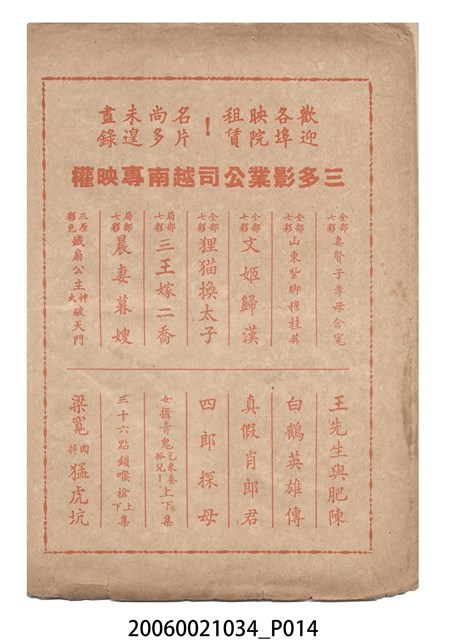 歡迎各埠映院租賃！名片尚多未遑畫錄
三多影業公司越南專映權
全部七彩妻賢子孝母含冤
全部七彩山東紮脚穆桂英
全部七彩文姬歸漢
全部七彩狸猫換太子
局部七彩三王嫁二喬
局部七彩晨妻暮嫂
三原彩色鐵扇公主神火破天門
王先生與肥陳
白鶴英雄傳
真假肖郎君
四郎探母
女攝青鬼乞米養孤兒！上下集
三十六點鎖喉槍上下集
梁寬肉搏猛虎坑
20060021034_P014